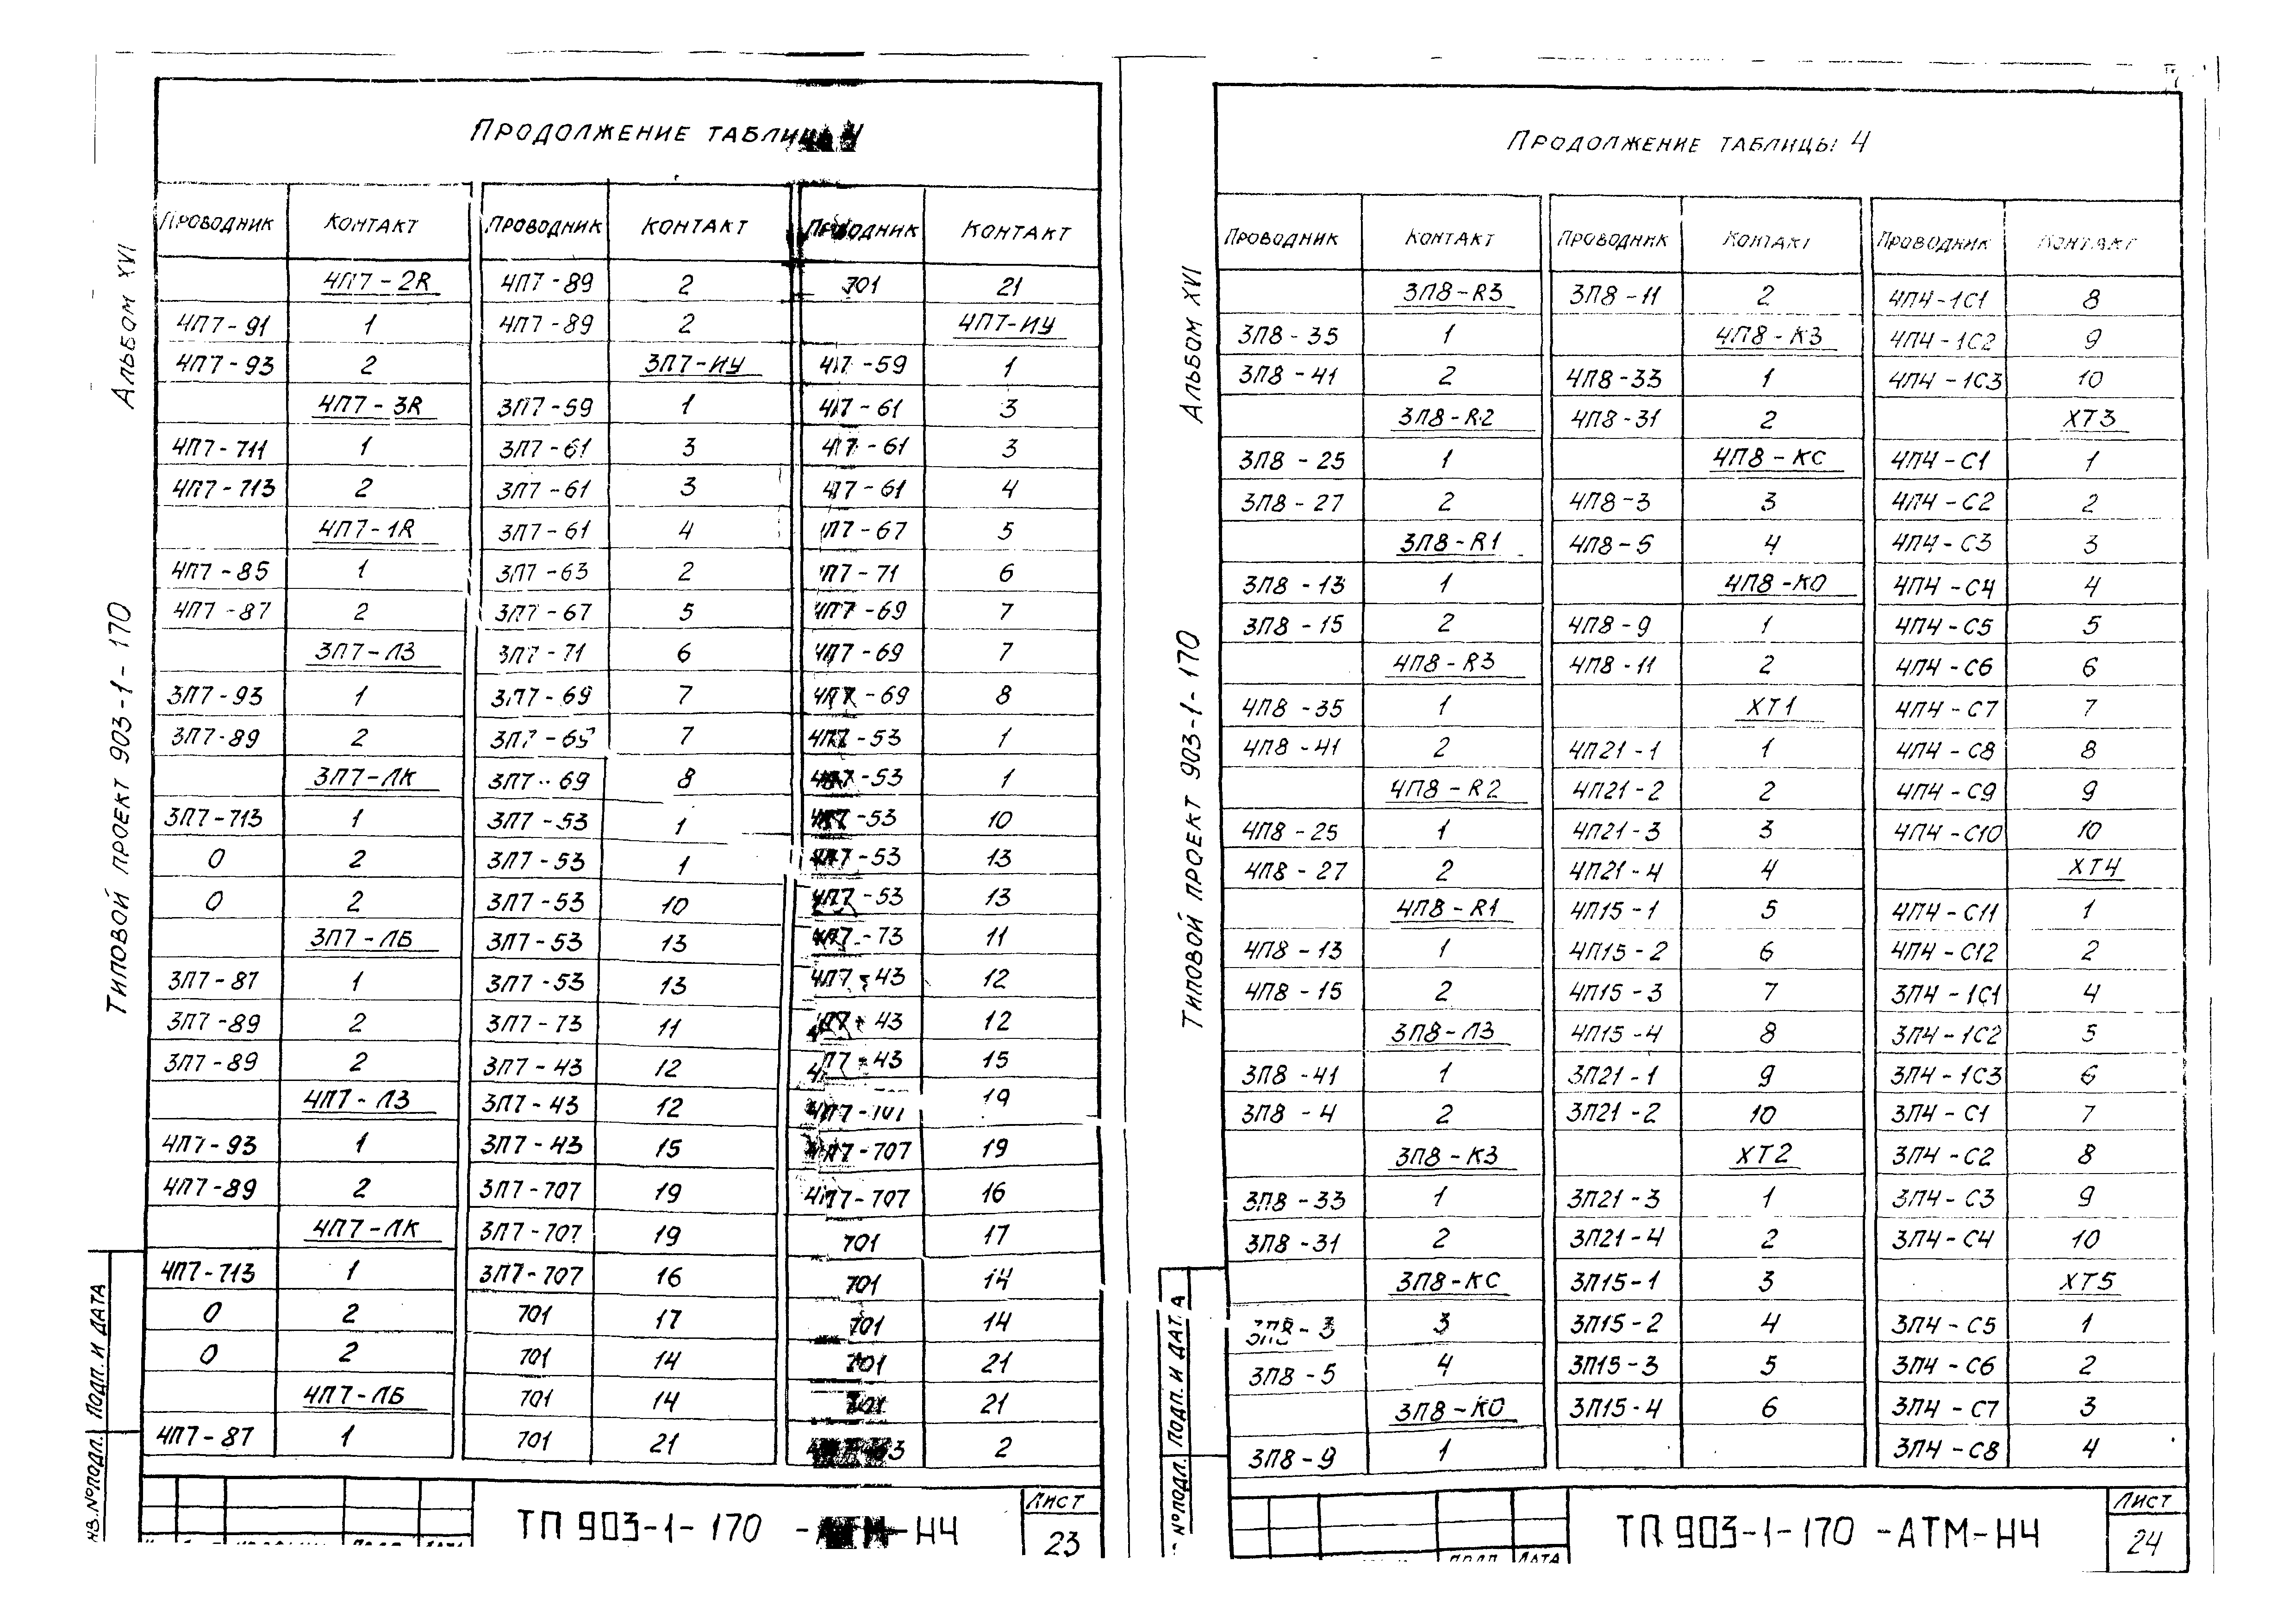 Продолжение таблицы 4
Проводник Контакт Проводник Контакт Проводник Контакт
4П7-2R 4П7-89 2 701 21
4П7-91 1 4П7-89 2 4П7-ИУ
4П7-93 2 3П7-ИУ 4П7-59 1
4П7-3R 3П7-59 1 4П7-61 3
4П7-711 1 3П7-61 3 4П7-61 3
4П7-713 2 3П7-61 3 4П7-61 4
4П7-1R 3П7-61 4 4П7-67 5
4П7-85 1 3П7-63 2 4П7-71 6
4П7-87 2 3П7-67 5 4П7-69 7
3П7-ЛЗ 3П7-71 6 4П7-69 7
3П7-93 1 3П7-69 7 4П7-69 8
3П7-89 2 3П7-69 7 4П7-53 1
3П7-ЛК 3П7-69 8 4П7-53 1
3П7-713 1 3П7-53 1 4П7-53 10
0 2 3П7-53 1 4П7-53 13
0 2 3П7-53 10 4П7-53 13
3П7-ЛБ 3П7-53 13 4П7-73 11
3П7-87 1 3П7-53 13 4П7-43 12
3П7-89 2 3П7-73 11 4П7-43 12
3П7-89 2 3П7-43 12 4П7-43 15
4П7-ЛЗ 3П7-43 12 4П7-707 19
4П7-93 1 3П7-43 15 4П7-707 19
4П7-89 2 3П7-707 19 4П7-707 16
4П7-ЛК 3П7-707 19 701 17
4П7-713 1 3П7-707 16 701 14
0 2 701 17 701 14
0 2 701 14 701 21
4П7-ЛБ 701 14 701 21
4П7-87 1 701 21 2
ТП 903-1-170 -АТМ-Н4
Лист
23
Альбом XVI
Типовой проект 903-1-170
Подп. и дата
№подл.
Продолжение таблицы 4
Проводник Контакт Проводник Контакт Проводник Контакт
3П8-R3 3П8-11 2 4П4-1С1 8
3П8-35 1 4П8-К3 4П4-1С2 9
3П8-41 2 4П8-33 1 4П4-1С3 10
3П8-R2 4П8-31 2 ХТ3
3П8-25 1 4П8-КС 4П4-С1 1
3П8-27 2 4П8-3 3 4П4-С2 2
3П8-R1 4П8-5 4 4П4-С3 3
3П8-13 1 4П8-КО 4П4-С4 4
3П8-15 2 4П8-9 1 4П4-С5 5
4П8-R3 4П8-11 2 4П4-С6 6
4П8-35 1 ХТ1 4П4-С7 7
4П8-41 2 4П21-1 1 4П4-С8 8
4П8-R2 4П21-2 2 4П4-С9 9
4П8-25 1 4П21-3 3 4П4-С10 10
4П8-27 2 4П21-4 4 ХТ4
4П8-R1 4П15-1 5 4П4-С11 1
4П8-13 1 4П15-2 6 4П4-С12 2
4П8-15 2 4П15-3 7 3П4-1С1 4
3П8-ЛЗ 4П15-4 8 3П4-1С2 5
3П8-41 1 3П21-1 9 3П4-1С3 6
3П8-4 2 3П21-2 10 3П4-С1 7
3П8-К3 ХТ2 3П4-С2 8
3П8-33 1 3П21-3 1 3П4-С3 9
3П8-31 2 3П21-4 2 3П4-С4 10
3П8-КС 3П15-1 3 ХТ5
3П8-3 3 3П15-2 4 3П4-С5 1
3П8-5 4 3П15-3 5 3П4-С6 2
3П8-КО 3П15-4 6 3П4-С7 3
3П8-9 1 3П4-С8 4
ТП 903-1-170 -АТМ-Н4
Лист
24
Подп. Дата
Альбом XVI
Типовой проект 903-1-170
Подп. и дата
№подл.